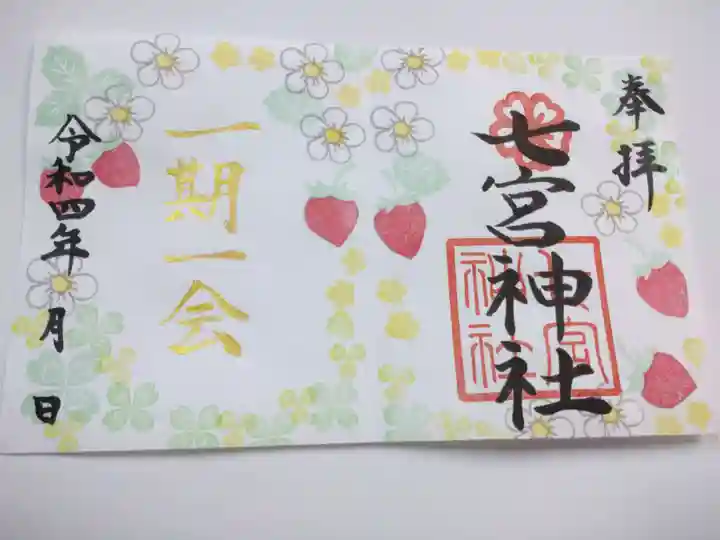 奉拝
七宮神社
七宮
神社
一期一会
令和四年 月 日